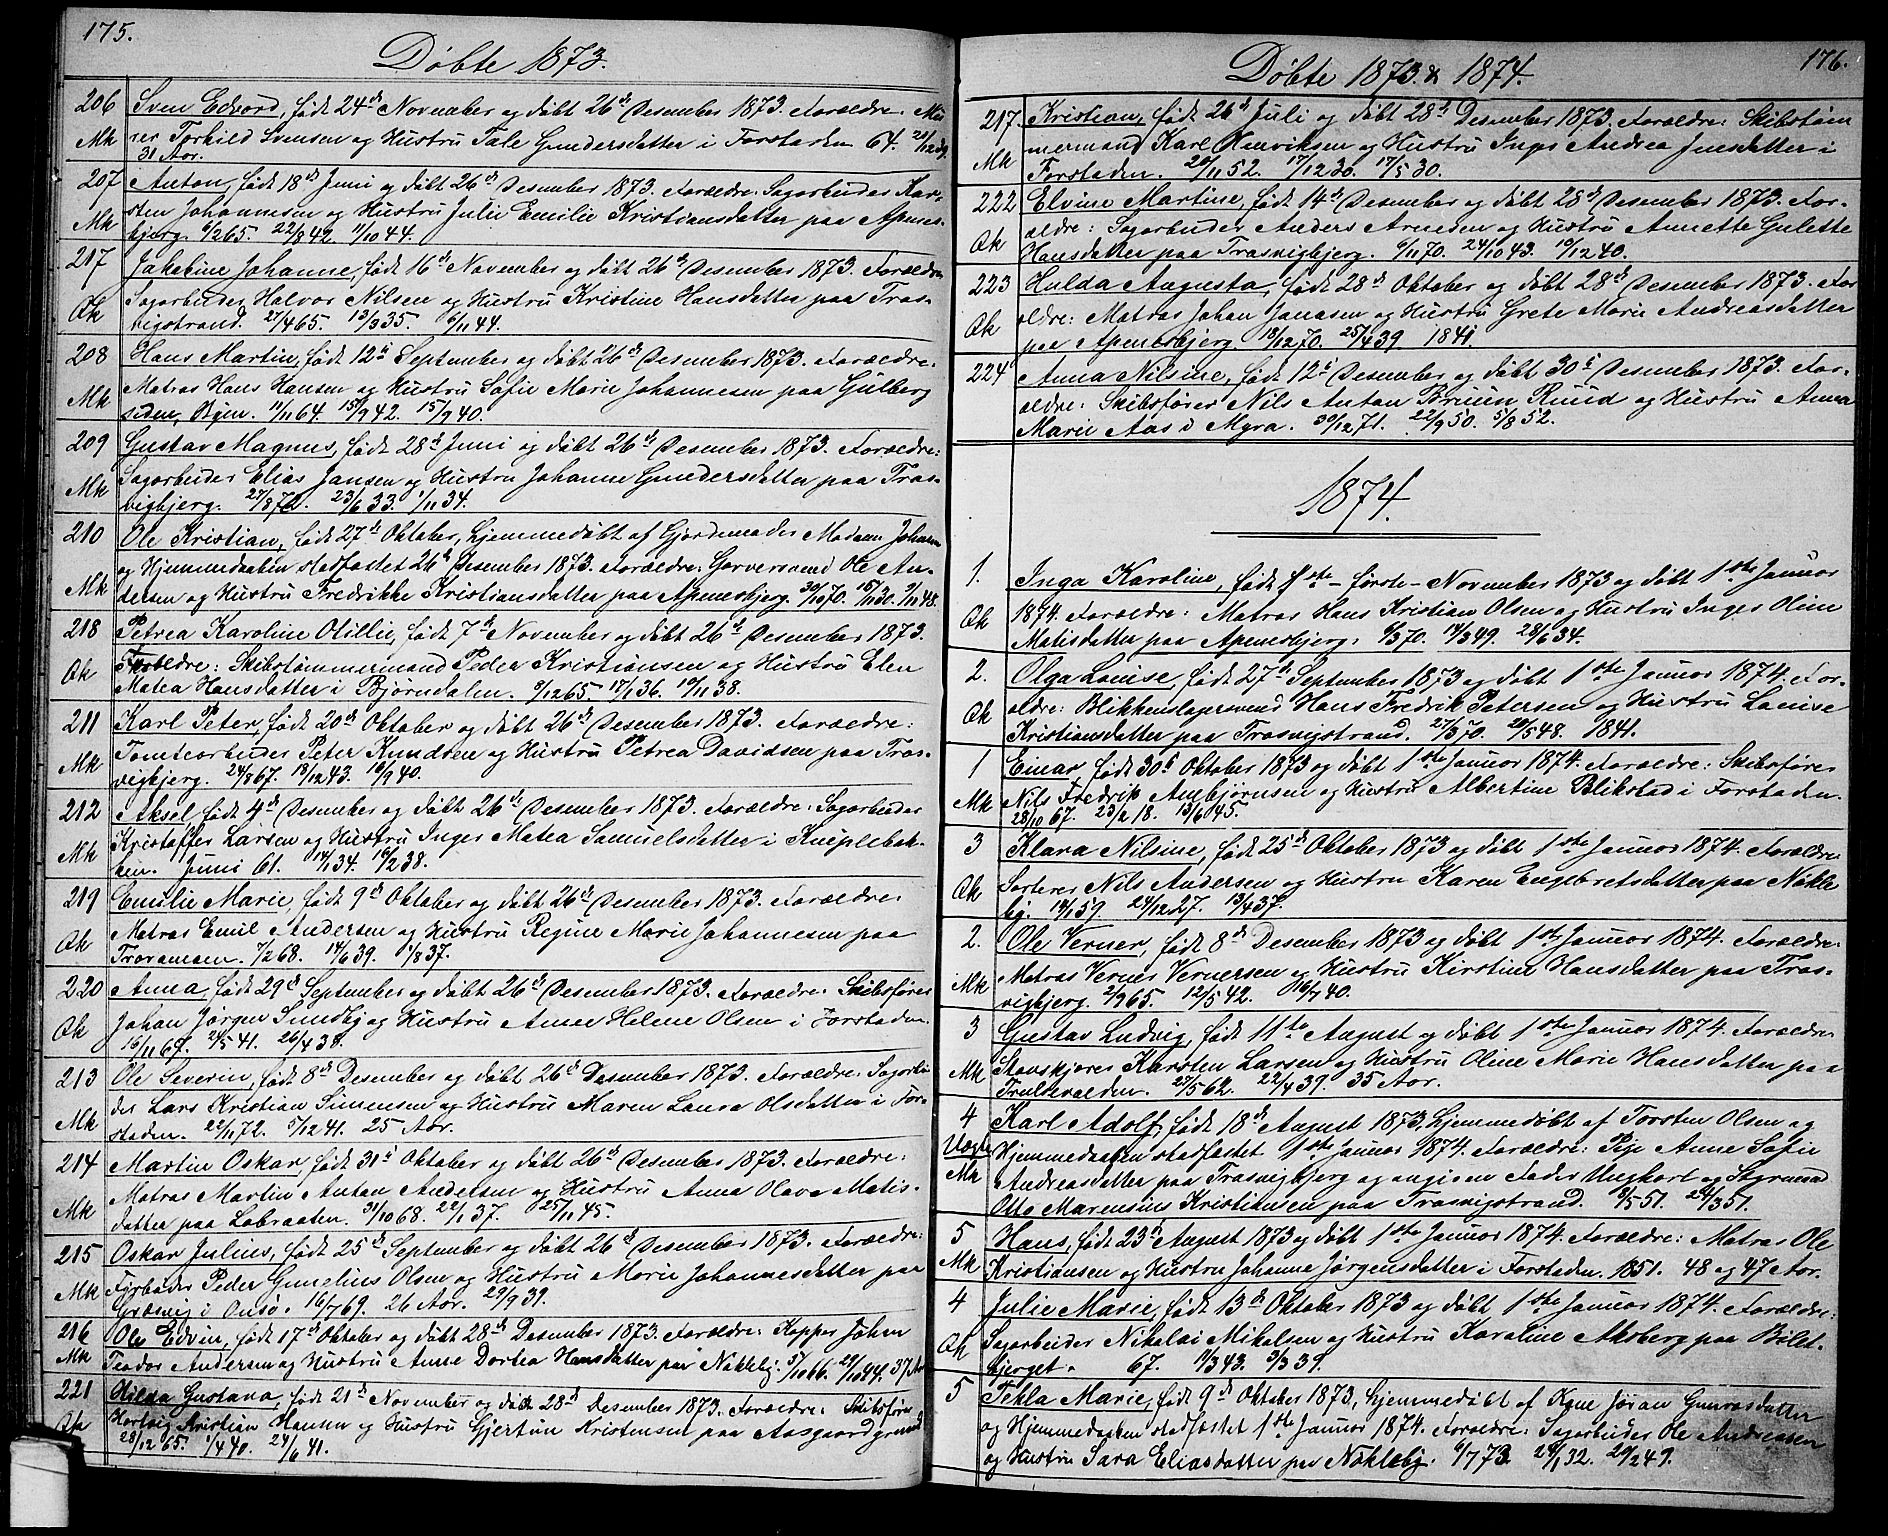 175.
Døbte 1873.
206 Sven Edvard, født 24de November og døbt 26de Desember 1873. Foræeldre: Mu-
Mk rer Torkild Svensen og Hustru Tale Gundersdatter i Forstaden 64.
31 Aar.
207 Anton, født 18de Juni og døbt 26de Desember 1873. Forældre: Sagarbeider Kar-
Mk sten Johannesen og Hustru Julie Emilie Kristiansdatter paa Apenes-
bjerg. 6/2 65. 22/8 42. 11/10 44.
217 Jakobine Johanne, født 16de November og døbt 26de Desember 1873. Forældre
Qk Sagarbeider Halvor Nilsen og Hustru Kristine Hansdatter paa Tras-
vigstrand. 27/4 65. 13/3 35. 6/11 44.
208 Hans Martin, født 12te September og døbt 26de Desember 1873. Forældre:
Mk Matros Hans Hansen og Hustru Sofie Marie Johannesen paa Gulberg
siden, Øigen. 11/11 64. 15/9 42. 15/9 40.
209 Gustav Magnus, født 28de Juni og døbt 26de Desember 1873. Forældre:
Mk Sagarbeider Elias Jansen og Hustru Johanne Gundersdatter paa Tras-
vigbjerg. 27/8 72. 23/6 33. 1/11 34.
210 Ole Kristian, født 27de Oktober, hjemmedøbt af Gjordemoder Madam Johnsen
og Hjemmedaaben stadfæstet 26de Desember 1873. Forældre: Garversvend Ole An-
Mk dersen og Hustru Fredrikke Kristiansdatter paa Apenesbjerg. 30/10 70. 16/11 30. 9/11 48.
218 Petrea Karoline Otillie, født 7de November og døbt 26de Desember 1873.
Qk Forældre: Skibstømmermand Peder Kristiansen og Hustru Elen
Matea Hansdatter i Bjørndalen. 8/12 65 17/1 36. 10/11 38.
211 Karl Peter, født 20de Oktober og døbt 26de Desember 1873. Forældre:
Mk Tomtearbeider Peter Knudsen og Hustru Petrea Davidsen paa Tras-
vigbjerg. 24/8 67. 13/12 43. 16/9 40.
212 Aksel, født 4de Desember og døbt 26de Desember 1873. Forældre: Sagarbeider
Mk Kristoffer Larsen og Hustru Inger Matea Samuelsdatter i Kneplebak-
ken. Juni 61. 14/1 34. 16/2 38.
219 Emilie Marie, født 9de Oktober og døbt 26de Desember 1873. Forældre:
Qk Matros Emil Andersen og Hustru Regine Marie Johannesen paa
Traramsen. 7/2 68. 14/6 39. 1/8 37.
220 Anna, født 29de September og døbt 26de Desember 1873. Forældre: Skibsfører
Qk Johan Jørgen Sundby og Hustru Anne Helene Olsen i Forstaden.
16/11 67. 21/5 41. 26/4 38.
213 Ole Severin, født 8de Desember og døbt 26de Desember 1873. Forældre: Sagarbei-
Mk der Lars Kristian Simensen og Hustru Maren Laura Olsdatter i For-
staden. 22/11 72. 5/12 41. 25 Aar.
214 Martin Oskar, født 31te Oktober og døbt 26de Desember 1873. Forældre:
Mk Matros Martin Anton Andersen og Hustru Anna Olava Matis-
datter paa Labraaten. 31/10 68. 22/1 37. 25/11 45.
215 Oskar Julius, født 25de September og døbt 26de Desember 1873. Forældre:
Mk Førbøder Peder Gunelius Olsen og Hustru Marie Johannesdatter paa
Græsvig i Onsø. 16/7 69. 26 Aar. 29/9 39.
216 Ole Edvin, født 17de Oktober og døbt 28de Desember 1873. Forældre: Kopper Johan
Mk Teodor Andersen og Hustru Anne Dortea Hansdatter paa Nøkleby. 5/10 66. 29/10 44. 37 Aar
221 Hilda Gustava, født 21de November og døbt 28de Desember 1873. Forældre: Skibsfører
Qk Hartvig Kristian Hansen og Hustru Gjertine Kristensen paa Aasgaardgrund
28/12 65. 1/4 40. 24/6 41.
176.
Døbte 1873 & 1874.
217. Kristian, født 26de Juli og døbt 28de Desember 1873. Forældre: Skibstøm
Mk mermand Karl Henriksen og Hustru Inger Andrea Jensdatter i
Forstaden. 20/11 52. 17/12 30. 17/5 30.
222 Elvine Martine, født 14de Desember og døbt 28de Desember 1873. For-
Qk ældre: Sagarbeider Anders Arnesen og Hustru Annette Gulette
Hansdatter paa Trasvigbjerg. 6/11 70. 24/10 43. 10/12 40.
223 Hulda Augusta, født 28de Oktober og døbt 28de Desember 1873. For
Qk ældre: Matros Johan Janasen og Hustru Grete Marie Andreasdatter
paa Apenesbjerg. 13/12 70. 25/4 39 1841.
224 Anna Nilsine, født 12te Desember og døbt 30te Desember 1873. For-
ældre: Skibsfører Nils Anton Bruun Ruud og Hustru Anna
Marie Aas i Myra. 30/12 71. 22/9 50. 5/8 52.
1874.
1. Inga Karoline, født 1ste - første - November 1873 og døbt 1ste Januar
Qk 1874. Forældre: Matros Hans Kristian Olsen og Hustru Inger Oline
Matisdatter paa Apenesbjerg. 6/3 70. 14/3 49. 28/6 34.
2. Olga Louise, født 27de September 1873 og døbt 1ste Januar 1874. For-
Qk ældre: Blikkenslagersvend Hans Fredrik Petersen og Hustru Louise
Kristiansdatter paa Trasvigstrand. 27/3 70. 20/5 48. 1841.
1 Einar, født 30te Oktober 1873 og døbt 1ste Januar 1874. Forældre: Skibsfører
Mk Nils Fredrik Ambjørnsen og Hustru Albertine Blikstad i Forstaden.
28/10 67. 23/2 18. 13/6 45.
3 Klara Nilsine, født 25de Oktober 1873 og døbt 1ste Januar 1874. Forældre
Qk Sorterer Nils Andersen og Hustru Karen Engebretsdatter paa Nøkle
by. 14/1 59. 24/12 27. 13/4 37.
2. Ole Verner, født 8de Desember 1873 og døbt 1ste Januar 1874. Forældre:
Mk Matros Verner Vernersen og Hustru Kirstine Hansdatter paa Tras-
vigbjerg. 2/9 65. 12/5 42. 16/7 40.
3 Gustav Ludvig, født 11te August og døbt 1ste Januar 1874. Forældre:
Mk Stavskjører Karsten Larsen og Hustru Oline Marie Hansdatter paa
Trulsevalden. 27/5 62. 22/4 39. 35 Aar.
4 Karl Adolf, født 18de August 1873, hjemmedøbt af Torsten Olsen og
Uægte Hjemmedaaben stadfæstet 1ste Januar 1874. Forældre: Pige Anne Sofie
Mk Andreasdatter paa Trasvigbjerg og angiven Fader Ungkarl og Styrmand
Otto Marensius Kristiansen paa Trasvigstrand. 8/5 51. 24/3 51.
5 Hans, født 23de August 1873 og døbt 1ste Januar 1874. Forældre: Matros Ole
Mk Kristiansen og Hustru Johanne Jørgensdatter i Forstaden. 1851. 48 og 47 Aar.
4 Julie Marie, født 13de Oktober 1873 og døbt 1ste Januar 1874. Forældre:
Qk Sagarbeider Nikolai Mikalsen og Hustru Karoline Moberg paa Bilet-
bjerget. 67. 9/3 43. 3/3 39.
5 Tekla Marie, født 9de Oktober 1873, hjemmedøbt af Kone Jøran Gunvasdatter
Qk og Hjemmedaaben stadfæstet 1ste Januar 1874. Forældre: Sagarbeider Ole Andreassen
og Hustru Sara Eliasdatter paa Nøkleby. 6/7 73. 28/1 32. 20/2 49.